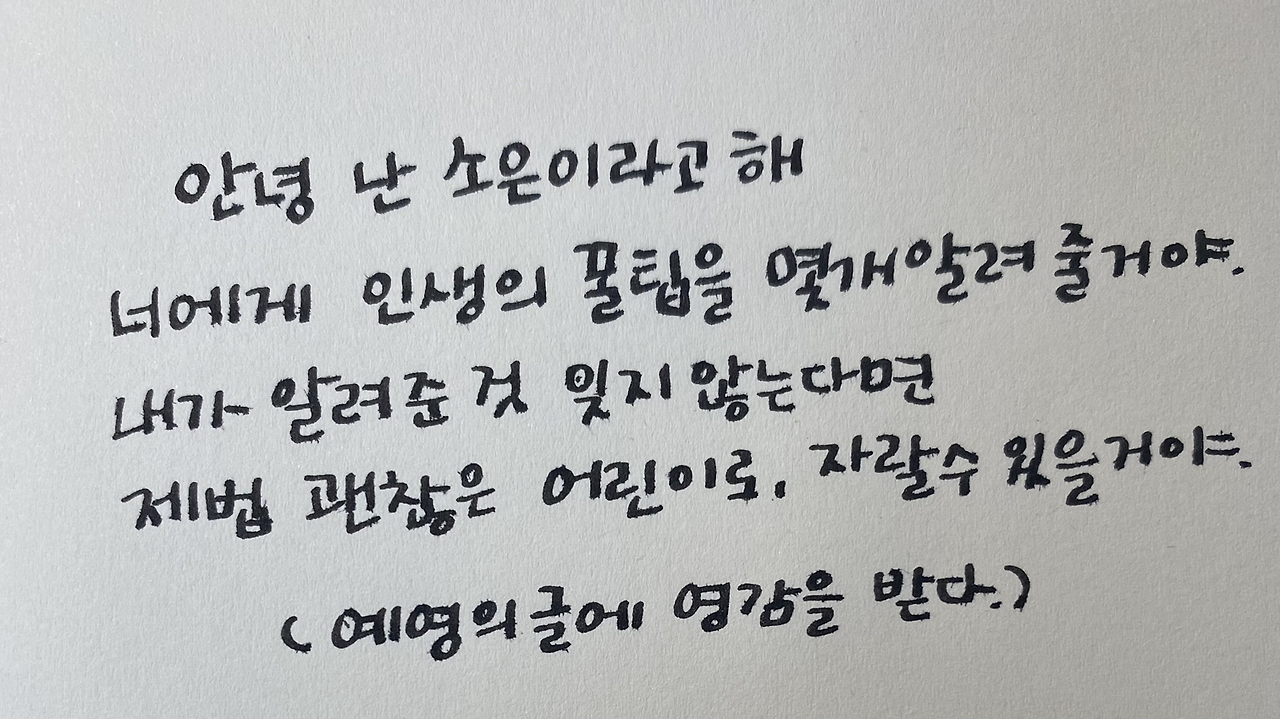 안녕 난 소은이라고 해
너에게 인생의 꿀팁을 몇개 알려 줄거야.
내가 알려준 것 잊지 않는다면
제법 괜찮은 어린이로, 자랄수 있을거야.
(예영의 글에 영감을 받다.)